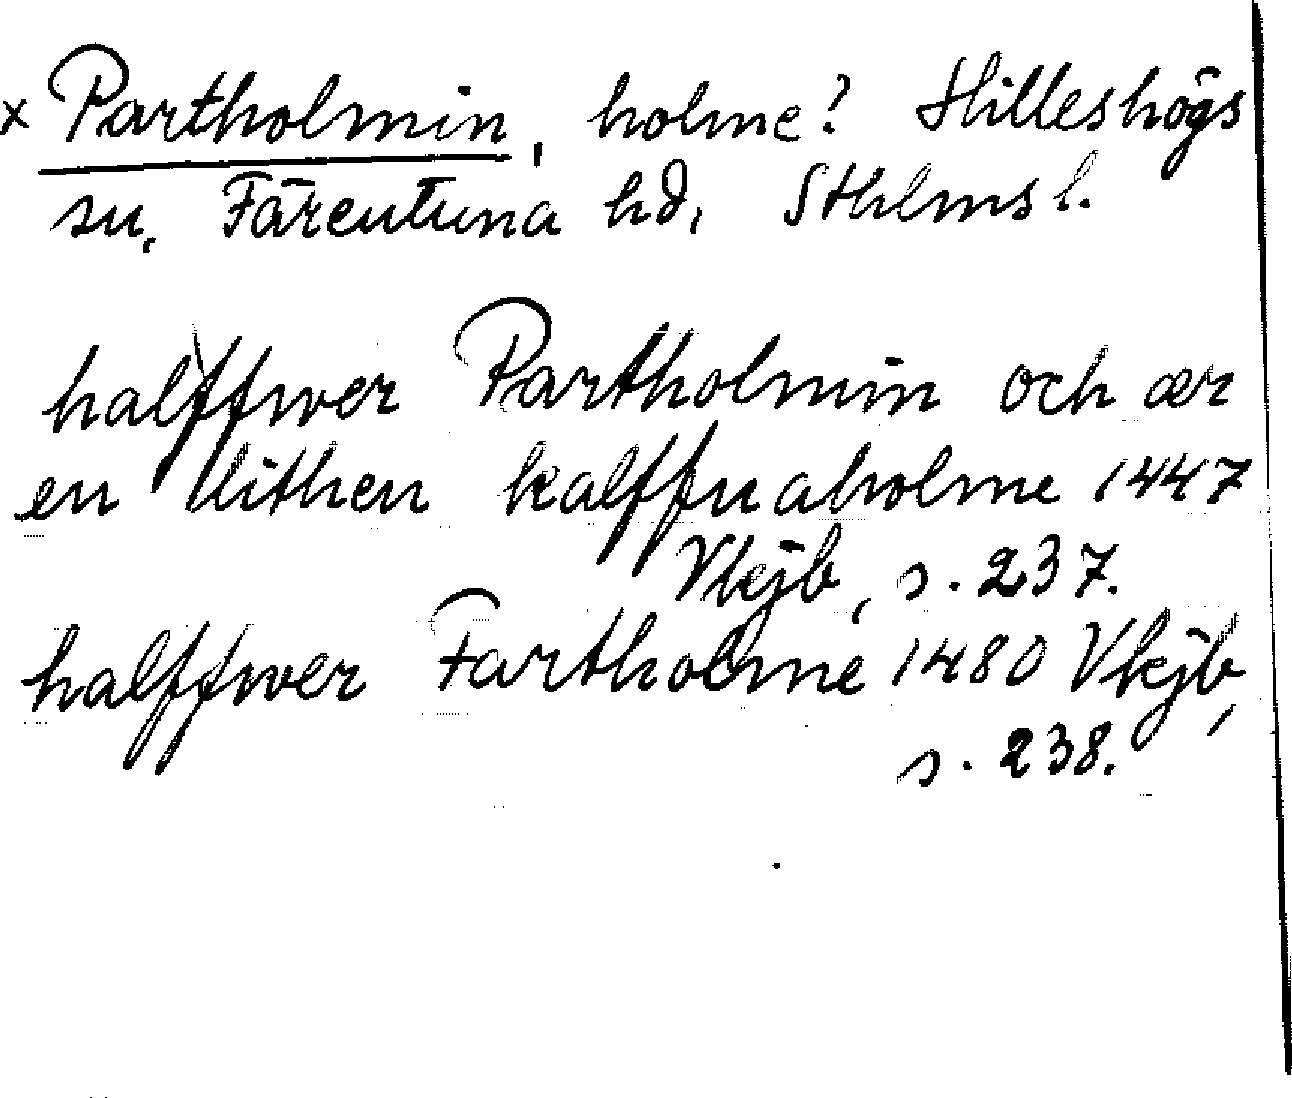 x Partholmin, holme? Hilleshögs
sn, Färentuna hd, Sthlms l.
halffwer Partholmin och ær
en lithen kalffnaholme 1447
Vkjb, s. 237.
halffwer Fartholme 1480 Vkjb,
s. 238.